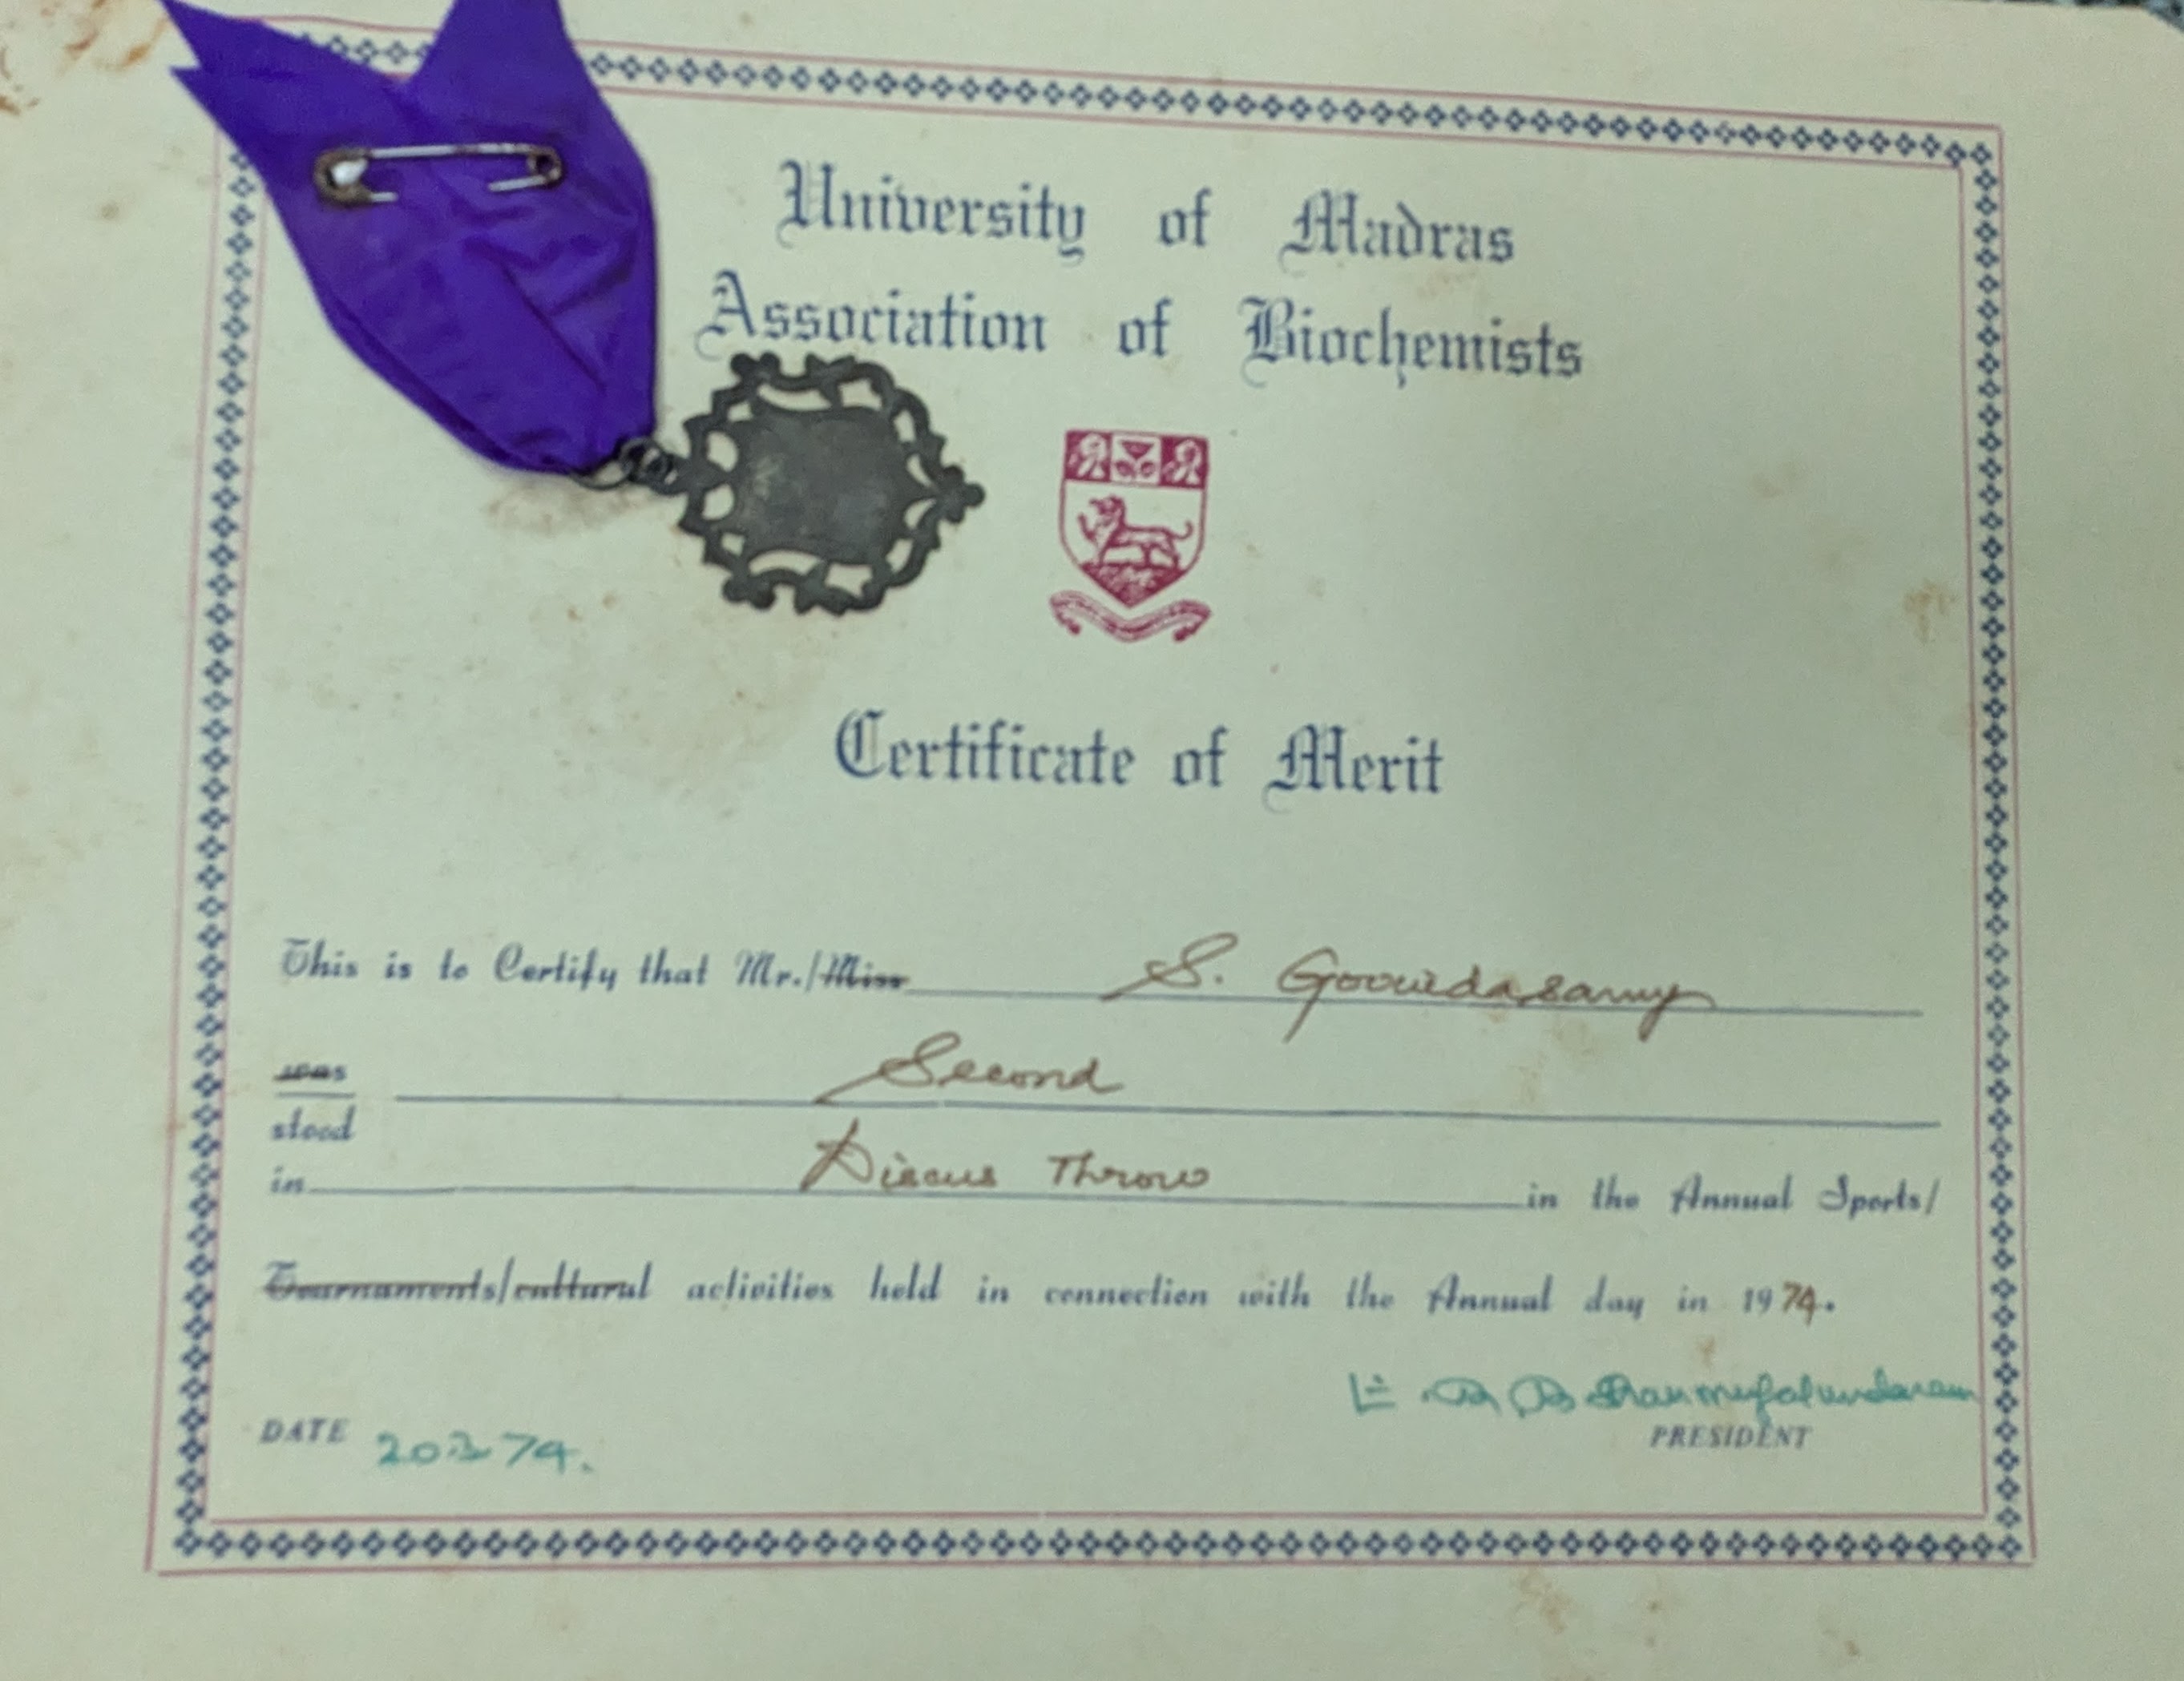 University of Madras
Association of Biochemists
Certificate of Merit
This is to Certify that Mr./Miss S. Govindasamy
was
stood Second
in Discus Throw in the Annual Sports/
Tournaments/cultural activities held in connection with the Annual day in 1974.
Shanmugasundaram
DATE 20.3.74.
PRESIDENT